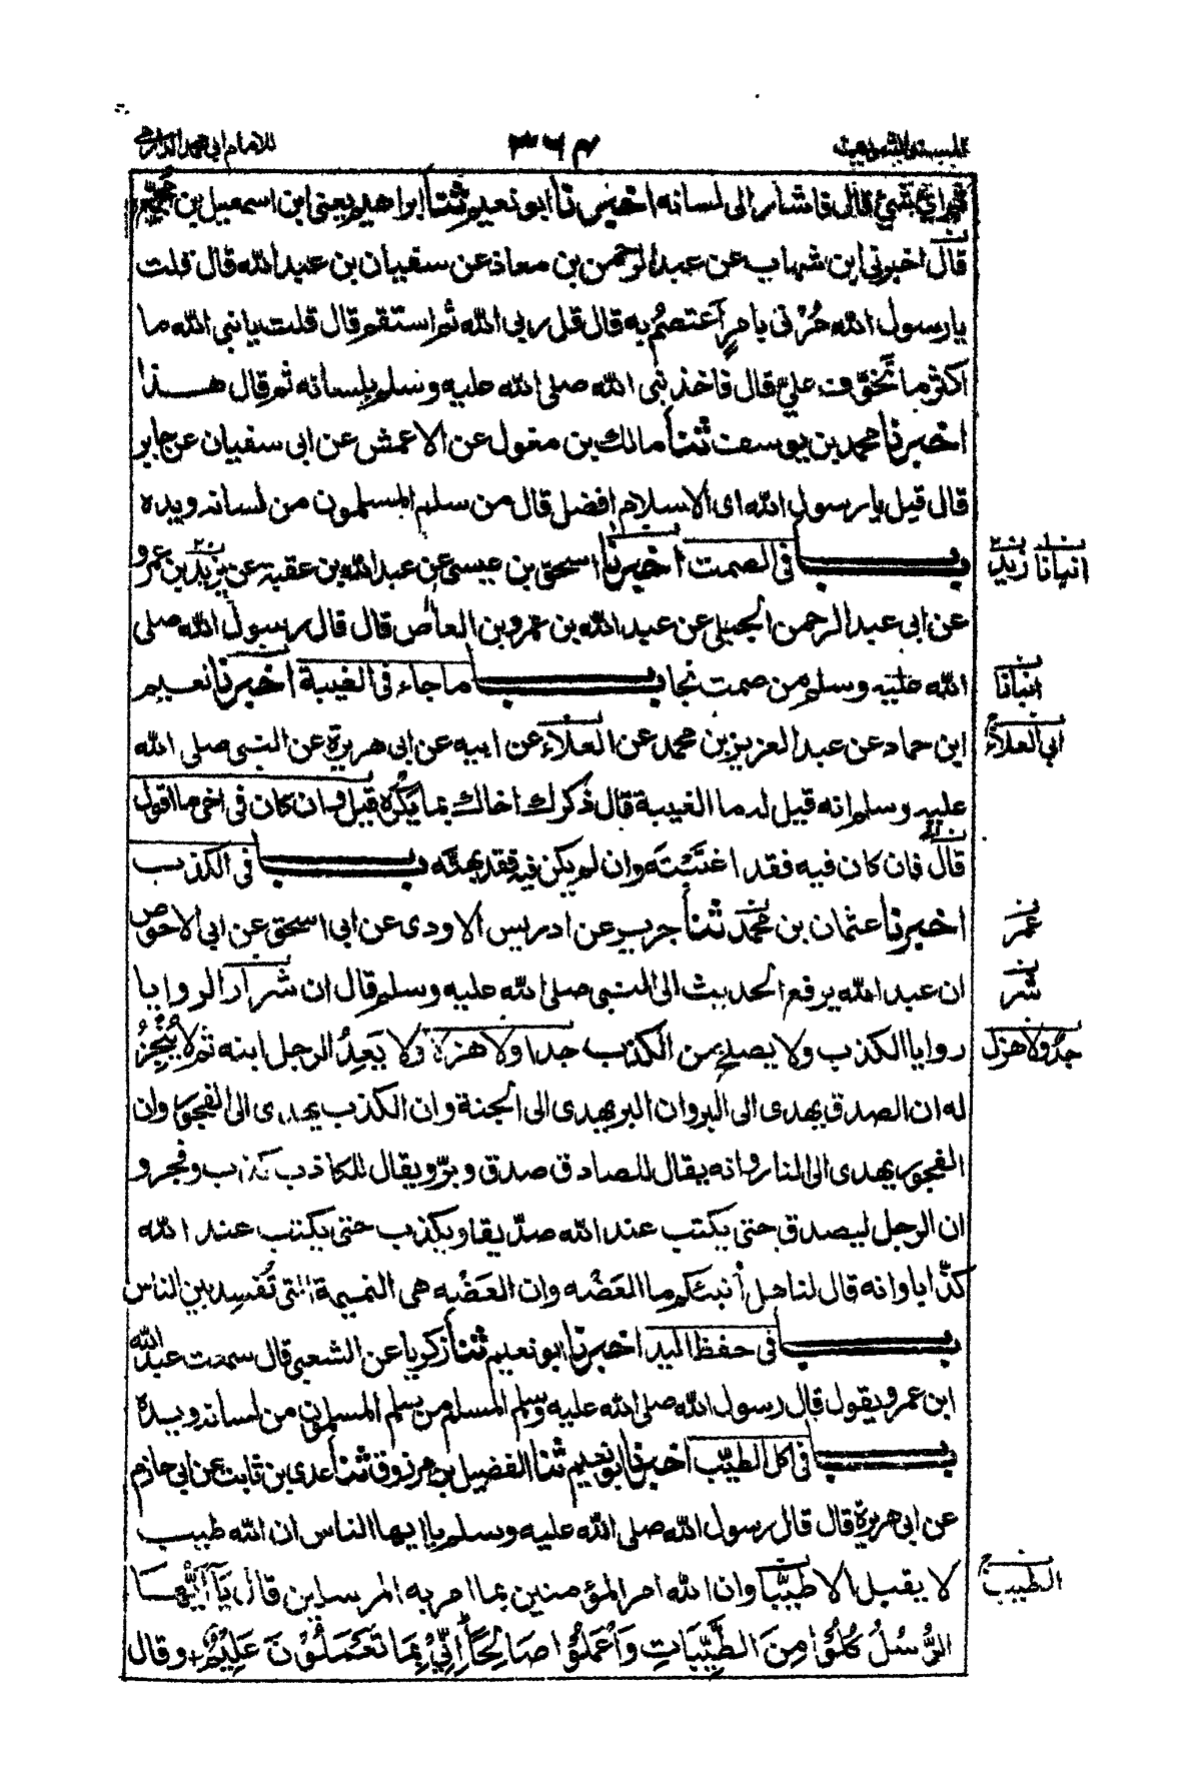 للامام ابی محمد الدارمی
۳۶۴
قال فاشار الی لسانه اخبرنا ابو نعیم ثنا ابراهیم یعنی ابن اسمعیل بن مجمع
قال اخبرنی ابن شهاب عن عبد الرحمن بن معاذ عن سفیان بن عبد الله قال قلت
یا رسول الله مُرْنی بامرٍ أعتصمُ به قال قل ربی الله ثم استقم قال قلت یا نبی الله ما
اکثر ما تخوّف علیّ قال فاخذ نبی الله صلی الله علیه وسلم بلسانه ثم قال هـذا
اخبرنا محمد بن یوسف ثنا مالك بن مغول عن الاعمش عن ابی سفیان عن جابر
قال قیل یا رسول الله ای الاسلام افضل قال من سلم المسلمون من لسانه ویده
بـــاب فی الصمت اخبرنا اسحق بن عیسی عن عبد الله بن عقبة عن یزید بن عمرو
انبانا زید
عن ابی عبد الرحمن الحبلی عن عبد الله بن عمرو بن العاص قال قال رسول الله صلی
الله علیه وسلم من صمت نجا بـــاب ما جاء فی الغیبة اخبرنا نعیم
انبانا
ابن حماد عن عبد العزیز بن محمد عن العلاء عن ابیه عن ابی هریرة عن النبی صلی الله
ابی العلاء
علیه وسلم انه قیل له ما الغیبة قال ذکرك اخاك بما یکره قیل وان کان فی اخی ما اقول
قال فان کان فیه فقد اغتَبْتَه وان لم یکن فیه فقد بهتّه بـــاب فی الکذب
اخبرنا عثمان بن محمد ثنا جریر عن ادریس الاودی عن ابی اسحق عن ابی الاحوص
عمر
ان عبد الله یرفع الحدیث الی النبی صلی الله علیه وسلم قال ان شرار الروایا
شر
روایا الکذب ولا یصلح من الکذب جدا ولا هزلا ولا یَعِدُ الرجل ابنه ثم لا یُنْجِزُ
جدٌ ولا هزل
له ان الصدق یهدی الی البر وان البر یهدی الی الجنة وان الکذب یهدی الی الفجور وان
الفجور یهدی الی النار وانه یقال للصادق صدق وبرّ ویقال للکاذب کذب وفجر و
ان الرجل لیصدق حتی یکتب عند الله صدّیقا ویکذب حتی یکتب عند الله
کذّابا وانه قال لنا هل أنبئکم ما العَضْه وان العَضْه هی النمیمة التی تُفسِد بین الناس
بـــاب فی حفظ الید اخبرنا ابو نعیم ثنا زکریا عن الشعبی قال سمعت عبد الله
ابن عمرو یقول قال رسول الله صلی الله علیه وسلم المسلم من سلم المسلمون من لسانه ویده
بـــاب فی اکل الطیّب اخبرنا ابو نعیم ثنا الفضیل بن مرزوق ثنا عدی بن ثابت عن ابی حازم
عن ابی هریرة قال قال رسول الله صلی الله علیه وسلم یا ایها الناس ان الله طیب
لا یقبل الا طیّبا وان الله امر المؤمنین بما امر به المرسلین قال یَآ أَیُّهَـا
الطیب
الرُّسُلُ کُلُوْا مِنَ الطَّیِّبَاتِ وَاعْمَلُوْا صَالِحًا اِنِّیْ بِمَا تَعْمَلُوْنَ عَلِیْمٌ وقال